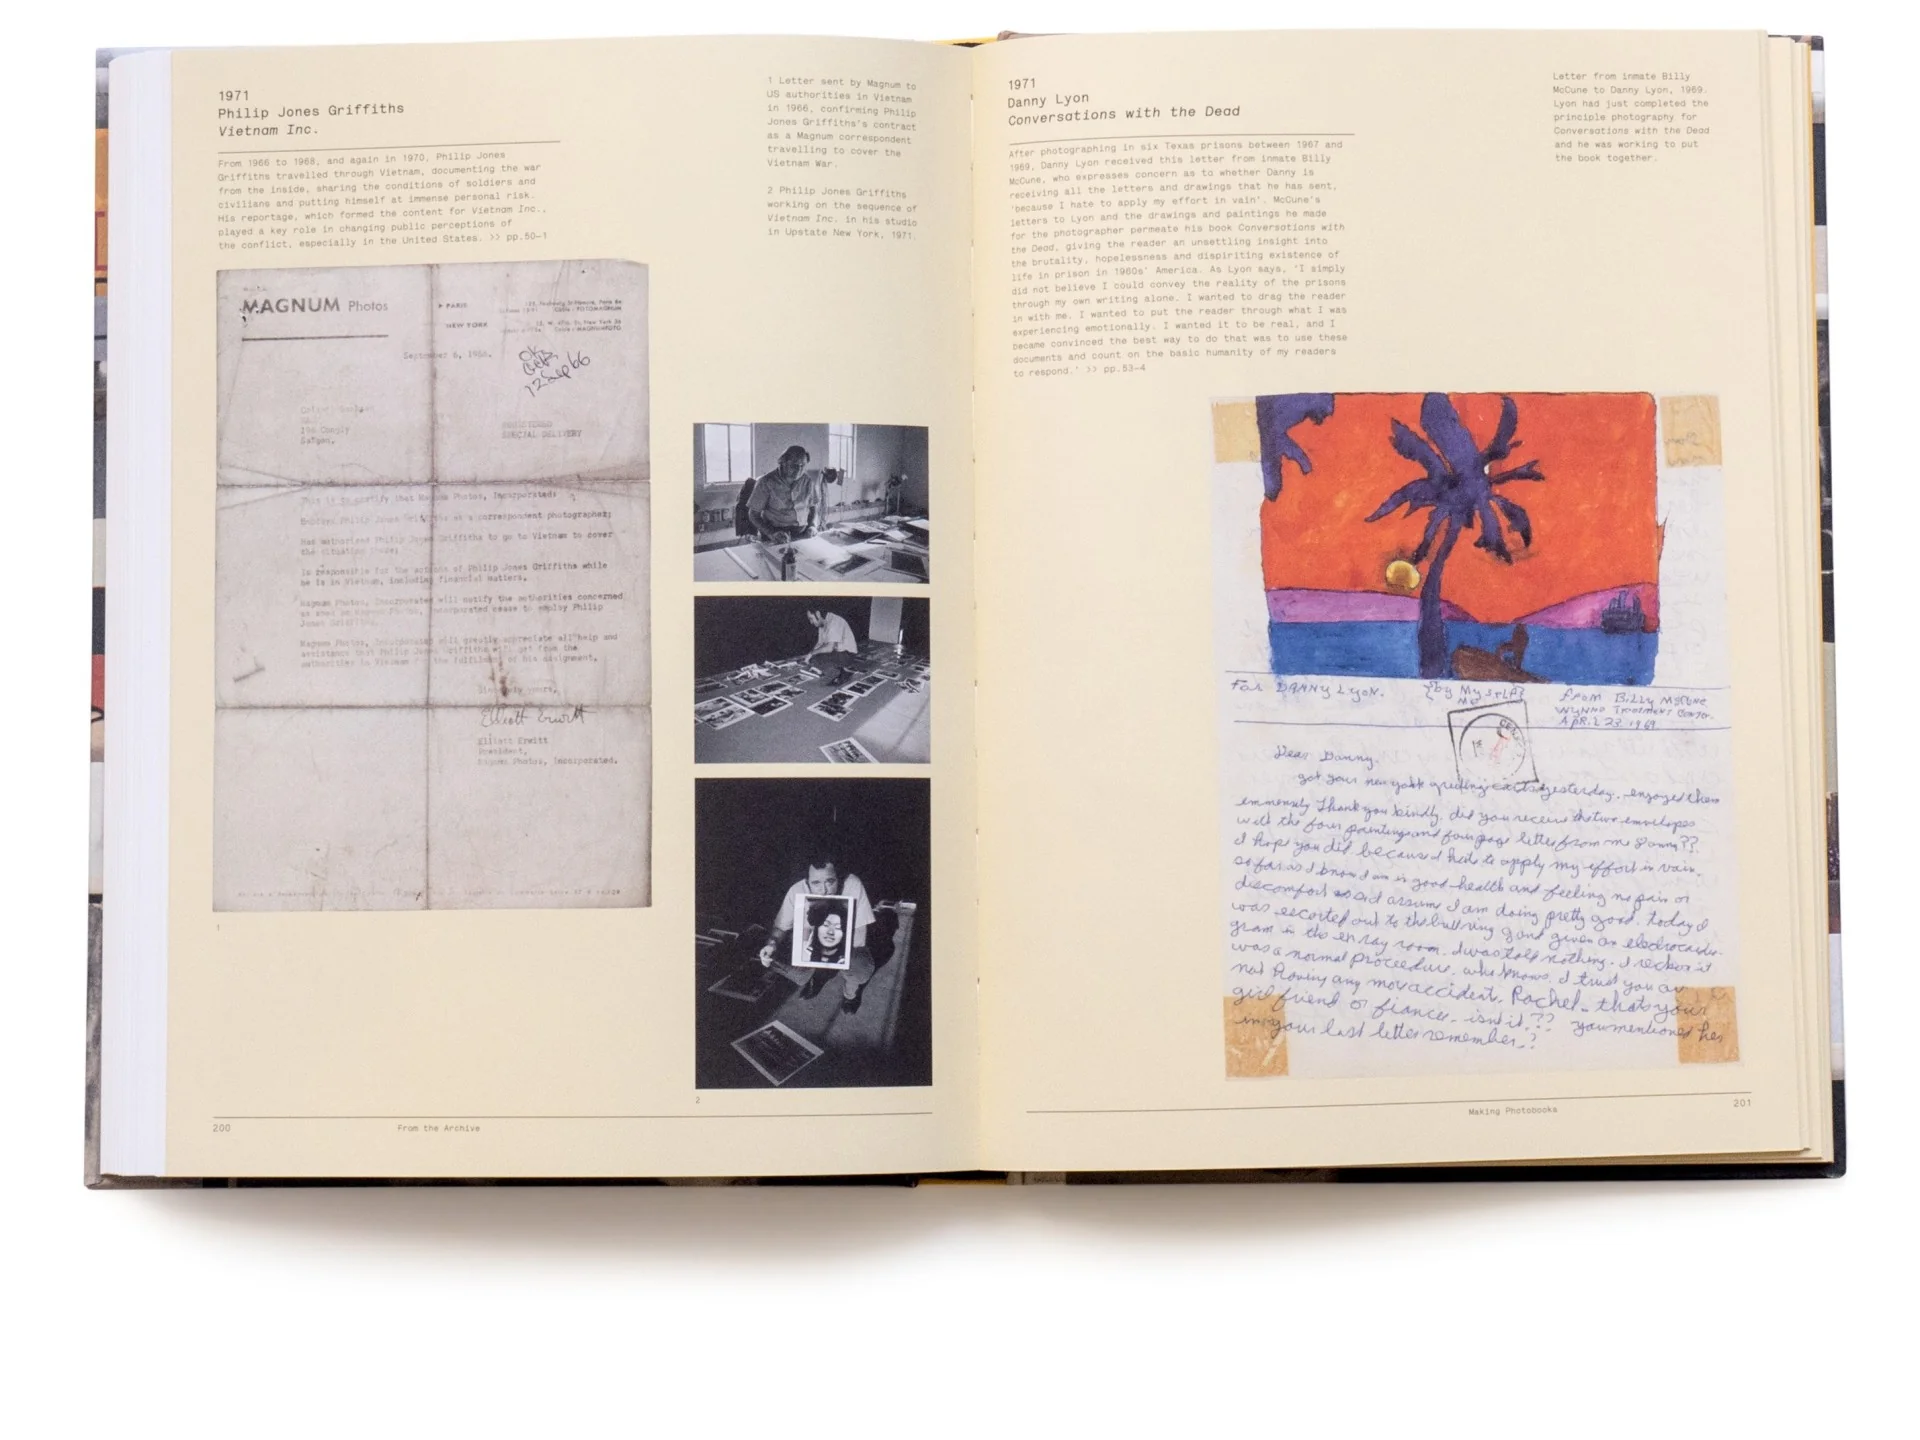 1971
Philip Jones Griffiths
Vietnam Inc.
From 1966 to 1968, and again in 1970, Philip Jones
Griffiths travelled through Vietnam, documenting the war
from the inside, sharing the conditions of soldiers and
civilians and putting himself at immense personal risk.
His reportage, which formed the content for Vietnam Inc.,
played a key role in changing public perceptions of
the conflict, especially in the United States. >> pp.50–1
1 Letter sent by Magnum to
US authorities in Vietnam
in 1966, confirming Philip
Jones Griffiths's contract
as a Magnum correspondent
travelling to cover the
Vietnam War.
2 Philip Jones Griffiths
working on the sequence of
Vietnam Inc. in his studio
in Upstate New York, 1971.
MAGNUM Photos
PARIS
NEW YORK
September 6, 1966.
OK
12 Sep 66
Saigon.
REGISTERED
SPECIAL DELIVERY
This is to certify that Magnum Photos, Incorporated:
Employs Philip Jones Griffiths as a correspondent photographer;
Has authorized Philip Jones Griffiths to go to Vietnam to cover
the situation there;
Is responsible for the actions of Philip Jones Griffiths while
he is in Vietnam, including financial matters.
Magnum Photos, Incorporated will notify the authorities concerned
as soon as Magnum Photos, Incorporated cease to employ Philip
Jones Griffiths.
Magnum Photos, Incorporated will greatly appreciate all help and
assistance that Philip Jones Griffiths will get from the
authorities in Vietnam for the fulfilment of his assignment.
Sincerely yours,
Elliott Erwitt
Elliott Erwitt
President,
Magnum Photos, Incorporated.
1
2
200
From the Archive
1971
Danny Lyon
Conversations with the Dead
After photographing in six Texas prisons between 1967 and
1969, Danny Lyon received this letter from inmate Billy
McCune, who expresses concern as to whether Danny is
receiving all the letters and drawings that he has sent,
'because I hate to apply my effort in vain'. McCune's
letters to Lyon and the drawings and paintings he made
for the photographer permeate his book Conversations with
the Dead, giving the reader an unsettling insight into
the brutality, hopelessness and dispiriting existence of
life in prison in 1960s' America. As Lyon says, 'I simply
did not believe I could convey the reality of the prisons
through my own writing alone. I wanted to drag the reader
in with me. I wanted to put the reader through what I was
experiencing emotionally. I wanted it to be real, and I
became convinced the best way to do that was to use these
documents and count on the basic humanity of my readers
to respond.' >> pp.53–4
Letter from inmate Billy
McCune to Danny Lyon, 1969.
Lyon had just completed the
principle photography for
Conversations with the Dead
and he was working to put
the book together.
For DANNY LYON.
from Billy McCune
WYNNE Treatment Center.
April 23 1969
Dear Danny.
got your new york greeting cards yesterday. enjoyed them
emmensely thank you kindly. did you receive the two envelopes
with the four paintings and four page letter from me Danny??
I hope you did because I hate to apply my effort in vain.
as far as I know I am in good health and feeling no pain or
discomfort so I assume I am doing pretty good. today I
was escorted out to the bull ring and given an electrocardio-
gram in the ex ray room. I was told nothing. I reckon it
was a normal procedure. who knows. I trust you are
not having any more accidents. Rachel- that's your
girl friend or fiancee- isn't it?? you mentioned her
in your last letter remember.?
Making Photobooks
201